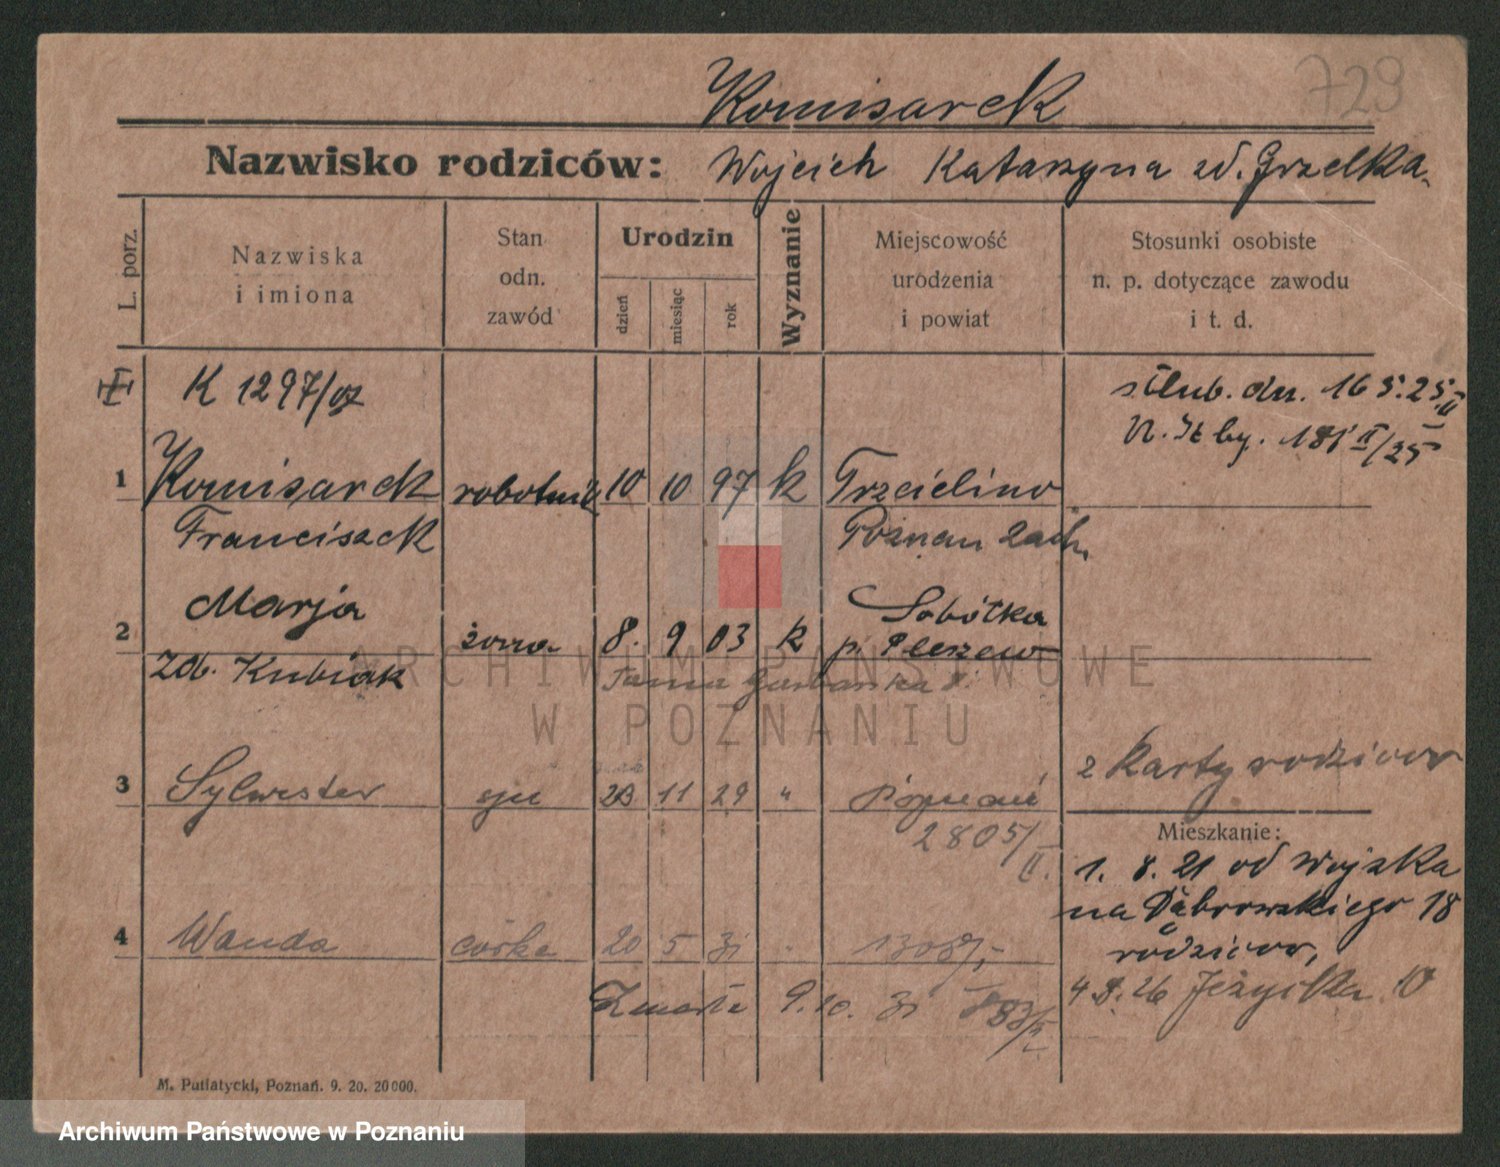 729
Komisarek
Nazwisko rodziców: Wojciech Katarzyna zd. Grzelka
L. porz.
Nazwiska i imiona
Stan odn. zawód
Urodzin
dzień
miesiąc
rok
Wyznanie
Miejscowość urodzenia i powiat
Stosunki osobiste n. p. dotyczące zawodu i t. d.
K 1297/07
ślub. dn. 16 5. 25.
181 II/25
1 Komisarek robotnik 10 10 97 k Trzcielino
Franciszek Poznań zach.
2 Marja żona 8. 9 03 k Sobótka
p. Pleszew
zd. Kubiak
ARCHIWUM PAŃSTWOWE
W POZNANIU
z karty rodziców
3 Sylwester syn 23 11 29 " Poznań
2805/II.
Mieszkanie:
1. 8. 21 od wojska
na Dąbrowskiego 18
rodziców,
4 Wanda córka 20 5 31 " 1308/
4 8. 26 Jeżycka 10
Zmarła 9. 10. 31 883/II
M. Putiatycki, Poznań. 9. 20. 20000.
Archiwum Państwowe w Poznaniu